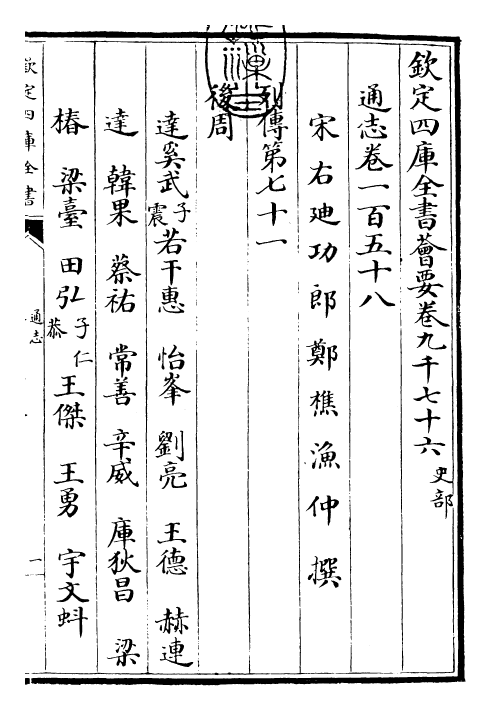 欽定四庫全書薈要卷九千七十六 史部
通志卷一百五十八
宋右廸功郎鄭樵漁仲撰
列傳第七十一
後周
達奚武 子震 若干惠 怡峯 劉亮 王德 赫連
達 韓果 蔡祐 常善 辛威 庫狄昌 梁
椿 梁臺 田弘 子仁恭 王傑 王勇 宇文虯
欽定四庫全書
通志
一